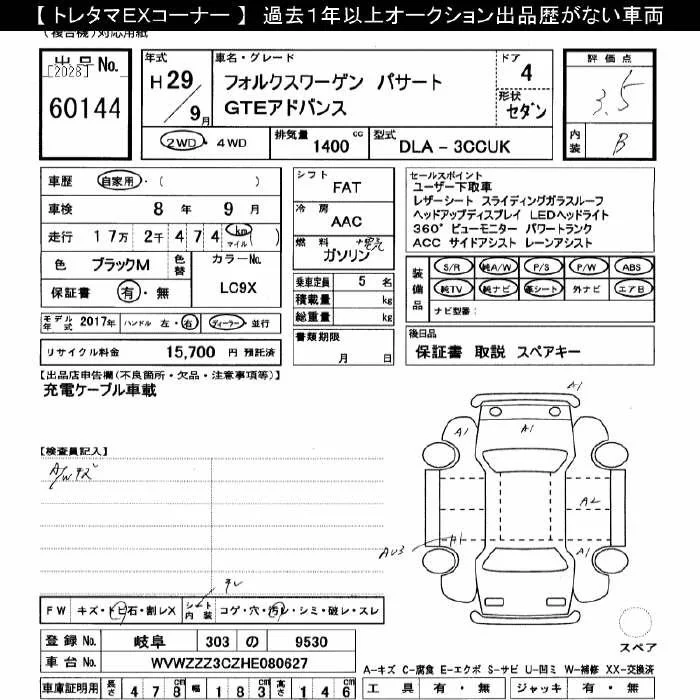 【 トレタマEXコーナー 】 過去1年以上オークション出品歴がない車両
(複合機)対応用紙
出品 No.
[2028]
60144
年式
H 29
9月
車名・グレード
フォルクスワーゲン パサート
GTEアドバンス
ドア
4
形状
セダン
評価点
3.5
内装
B
2WD・4WD
排気量
1400 cc
型式
DLA - 3CCUK
車歴
自家用・( )
車検
8 年 9 月
走行
17万 2千 474 km マイル ( )
色
ブラックM
色替
カラーNo.
LC9X
保証書
有・無
モデル年式 2017年 ハンドル 左・右 ディーラー・並行
リサイクル料金 15,700 円 預託済
シフト
FAT
冷房
AAC
燃料
+電気
ガソリン
乗車定員 5 名
積載量 kg
総重量 kg
書類期限
月 日
セールスポイント
ユーザー下取車
レザーシート スライディングガラスルーフ
ヘッドアップディスプレイ LEDヘッドライト
360° ビューモニター パワートランク
ACC サイドアシスト レーンアシスト
装備品
S/R 純A/W P/S P/W ABS
純TV 純ナビ 革シート 外ナビ エアB
ナビ型番:
後日品
保証書 取説 スペアキー
【出品店申告欄(不良箇所・欠品・注意事項等)】
充電ケーブル車載
【検査員記入】
A/W キズ
A1
A1
A1
A2
AU3
A1
A1
スレ
FW キズ・トビ石・割レX
シート内装 コゲ・穴・汚レ・シミ・破レ・スレ
登録 No. 岐阜 303 の 9530
車台 No. WVWZZZ3CZHE080627
車庫証明用 長さ 478 cm 幅 183 cm 高さ 146 cm
スペア
A-キズ C-腐食 E-エクボ S-サビ U-凹ミ W-補修 XX-交換済
工具 有・無 ジャッキ 有・無